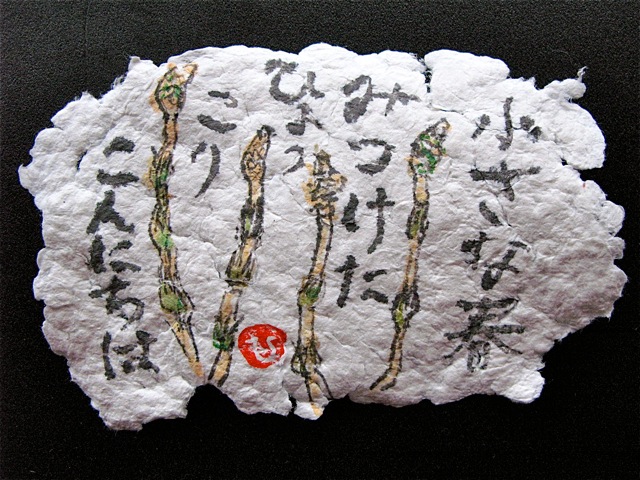 小さな春
みつけた
ひょっ
こり
こんにちは